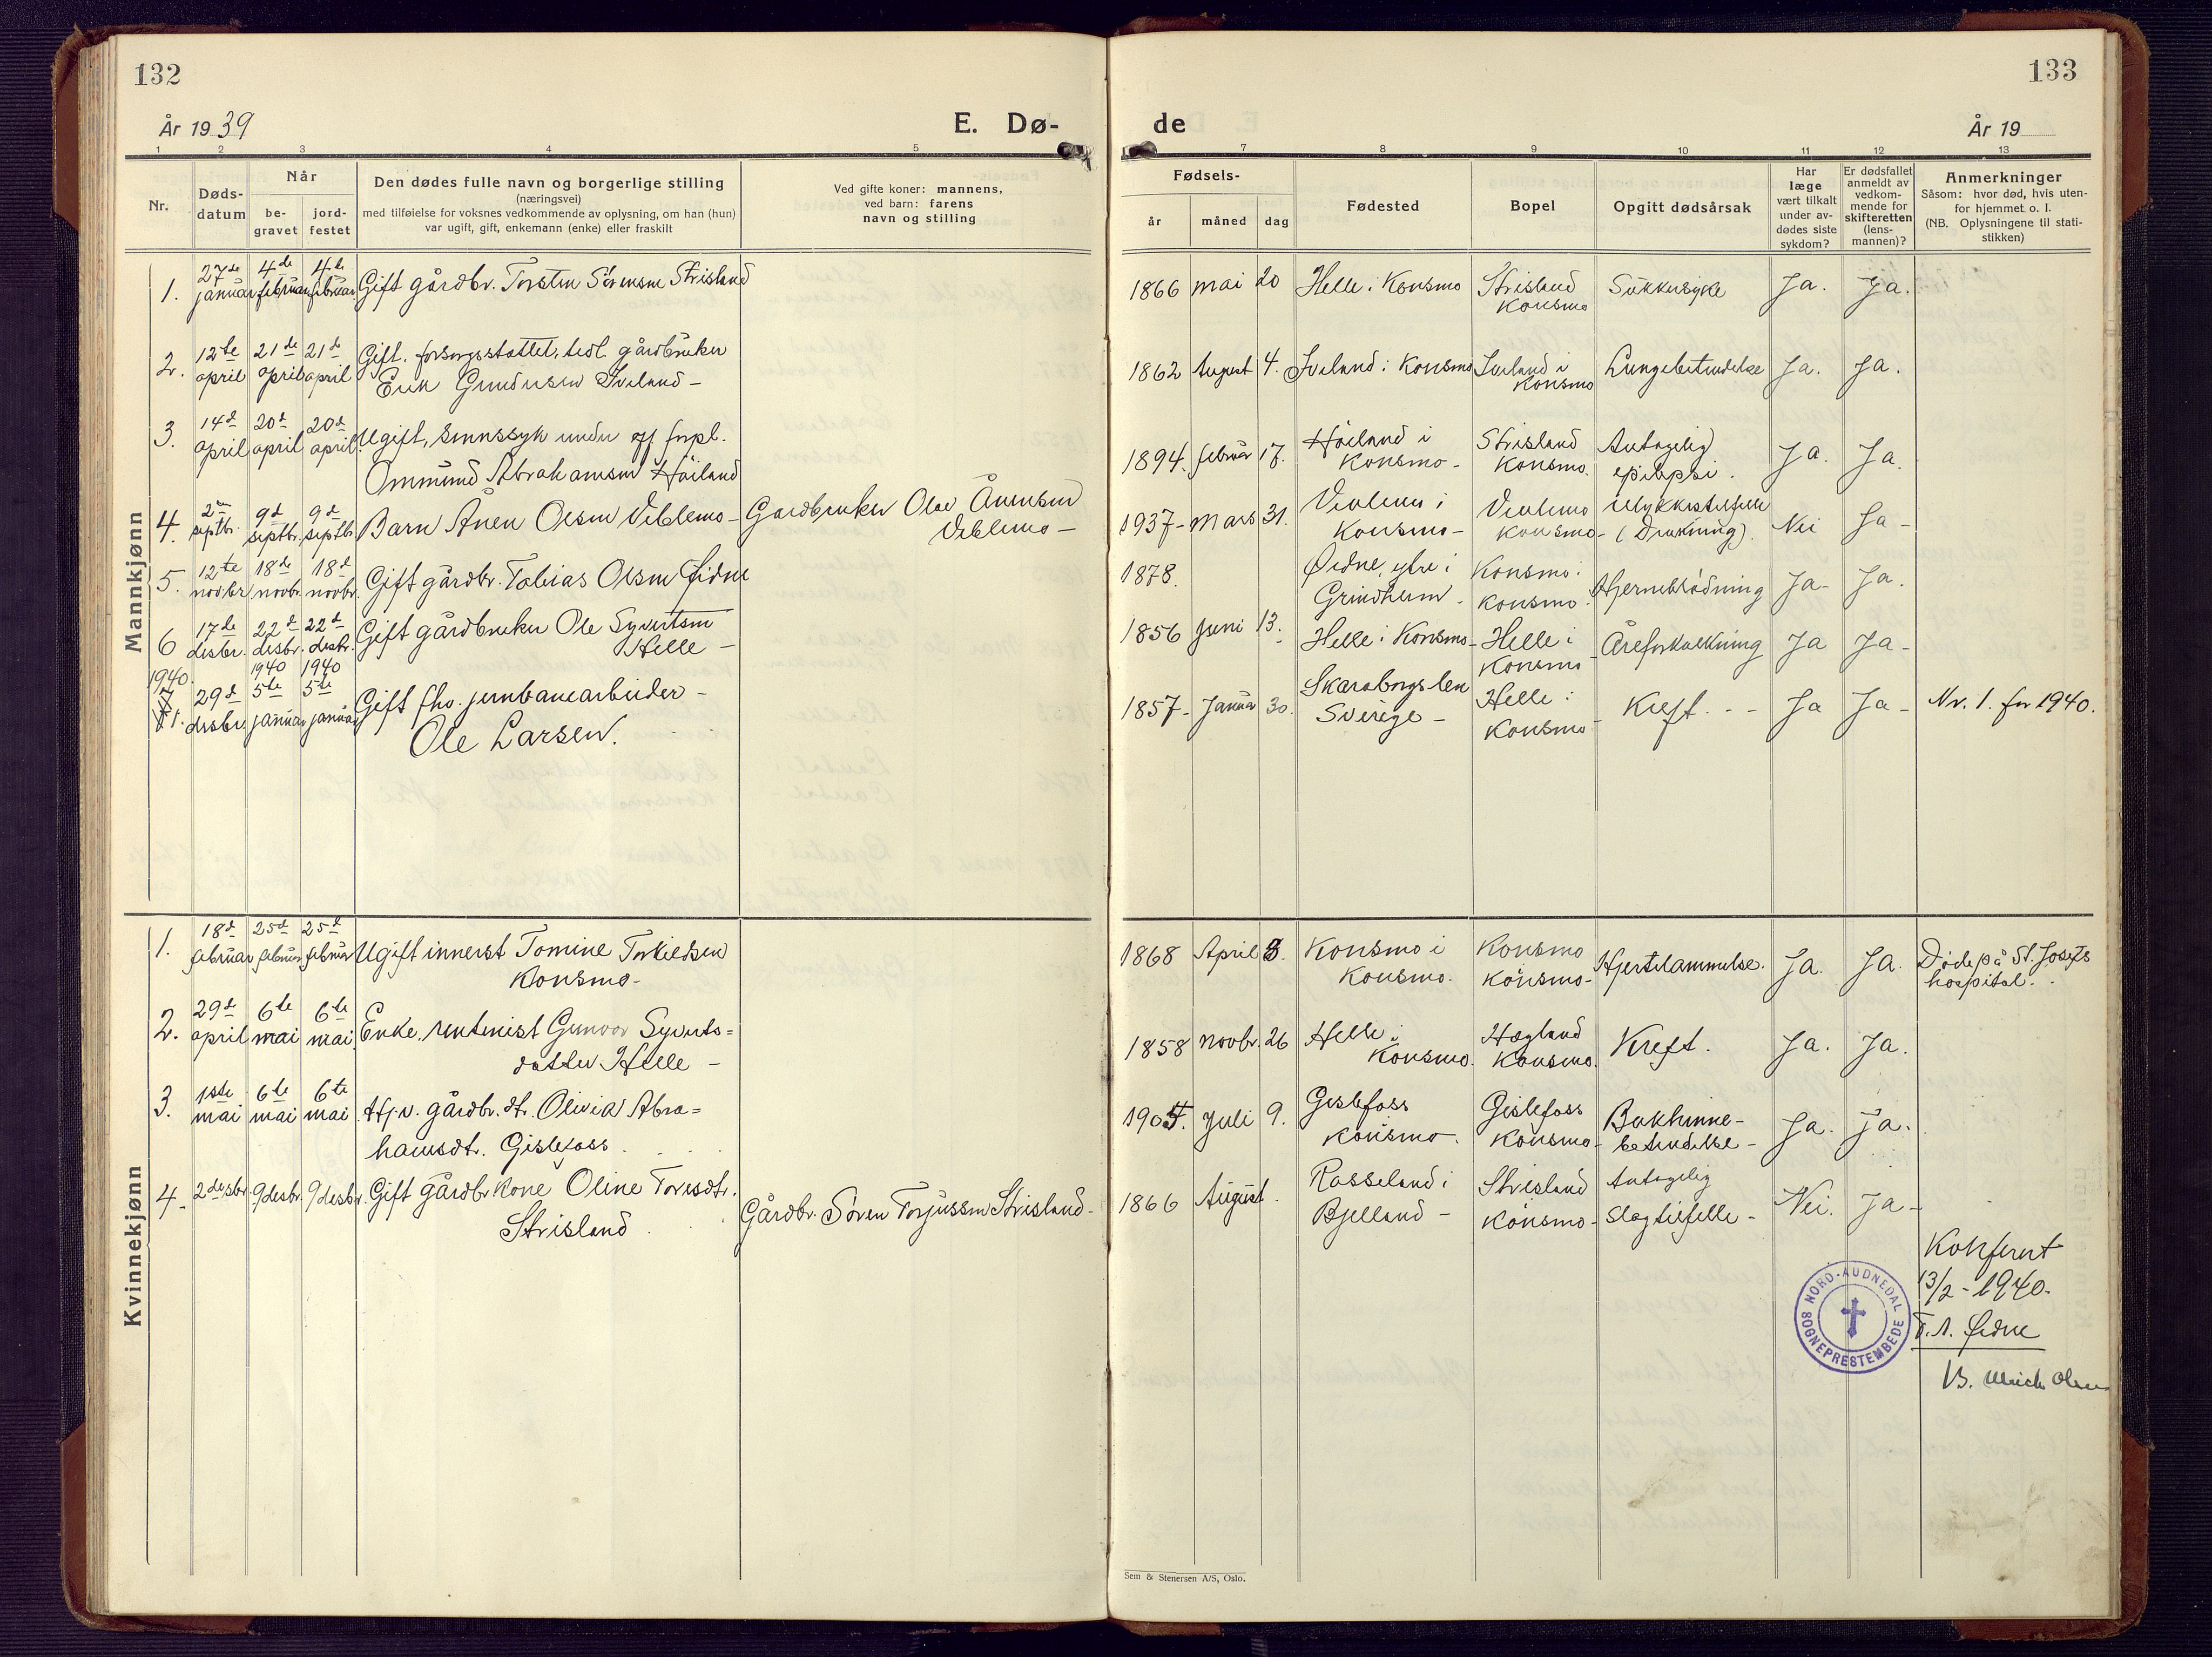 132
År 1939
E. Dø-
1 2 3 4 5
Nr.
Døds-
datum
Når
be-
gravet
jord-
festet
Den dødes fulle navn og borgerlige stilling
(næringsvei)
med tilføielse for voksnes vedkommende av oplysning, om han (hun)
var ugift, gift, enkemann (enke) eller fraskilt
Ved gifte koner: mannens,
ved barn: farens
navn og stilling
Mannkjønn
1. 27de januar 4de februar 4de februar Gift gårdbr. Torsten Sørensen Strisland
2. 12te april 21de april 21de april Gift. forsorgsstøttet, tidl. gårdbruker
Erik Gundersen Iveland -
3. 14d april 20d april 20d april Ugift, sinnssyk under off forpl.
Ommund Abrahamsen Höiland
4. 2en septbr. 9d septbr. 9d septbr. Barn Ånen Olsen Veblemo - Gardbruker Olav Ånensen
Veblemo -
5. 12te novbr 18de novbr. 18d novbr. Gift gårdbr. Tobias Olsen Øidne
6 17de desbr. 22d desbr. 22d desbr. Gift gårdbruker Ole Syvertsen
Helle -
1940.
7 1. 29d desbr. 1940 5te januar 1940 5te januar Gift fhv. jernbanearbeider -
Ole Larsen.
Kvinnekjønn
1. 18d februar 25d februar 25d februar Ugift innerst Tomine Torkildsen
Konsmo-
2. 29d april 6te mai 6te mai Enke, rentenist Gunvor Syverts=
datter Helle -
3. 1ste mai 6te mai 6te mai Hj.v. gårdbr. dt. Olivia Abra=
hamsdt. Gislefoss
4. 2 desbr. 9 desbr. 9 desbr. Gift gårdbr kone Oline Toresdtr.
Strisland
Gårdbr. Sören Torjussen Strisland-
133
de
År 19
7 8 9 10 11 12 13
Fødsels-
år måned dag
Fødested
Bopel
Opgitt dødsårsak
Har
læge
vært tilkalt
under av-
dødes siste
sykdom?
Er dødsfallet
anmeldt av
vedkom-
mende for
skifteretten
(lens-
mannen)?
Anmerkninger
Såsom: hvor død, hvis uten-
for hjemmet o. l.
(NB. Oplysningene til stati-
stikken)
1866 mai 20 Helle i Konsmo Strisland Konsmo Sukkersyke Ja. Ja.
1862 August 4. Iveland i Konsmo Iveland i Konsmo Lungebetendelse Ja. Ja.
1894. februar 17. Höiland i Konsmo - Strisland Konsmo. Antagelig epilepsi. Ja. Ja.
1937- Mars 31. Veblemo i Konsmo - Veblemo Konsmo- Ulykkestilfelle (Drukning). Nei Ja -
1878. Øidne, ytre i Grindheim - Konsmo i Konsmo. Hjerneblödning Ja - Ja.
1856 Juni 13. Helle i Konsmo- Helle i Konsmo- Åreforkalkning Ja Ja -
1857- Januar 30. Skaraborgs len Sverige - Helle i Konsmo- Kreft. - - Ja Ja - Nr. 1. for 1940.
1868 April 3. Konsmo i Konsmo. Konsmo Konsmo- Hjertelammelse. Ja. Ja. Döde på St. Josefs
hospital.
1858 novbr. 26 Helle i Konsmo. Hægland Konsmo. Kreft. Ja. Ja.
1905. Juli 9. Gislefoss Konsmo. Gislefoss Konsmo- Bukhinne-
betendelse - Ja. Ja.
1866 August. Rosseland i Bjelland - Strisland Konsmo- Antagelig
slagtilfelle - Nei. Ja -
Konferert
13/2 - 1940.
T. A. Øidne
B. Ulrich Olsen
NORD-AUDNEDAL
SOGNEPRESTEMBEDE
Sem & Stenersen A/S, Oslo.